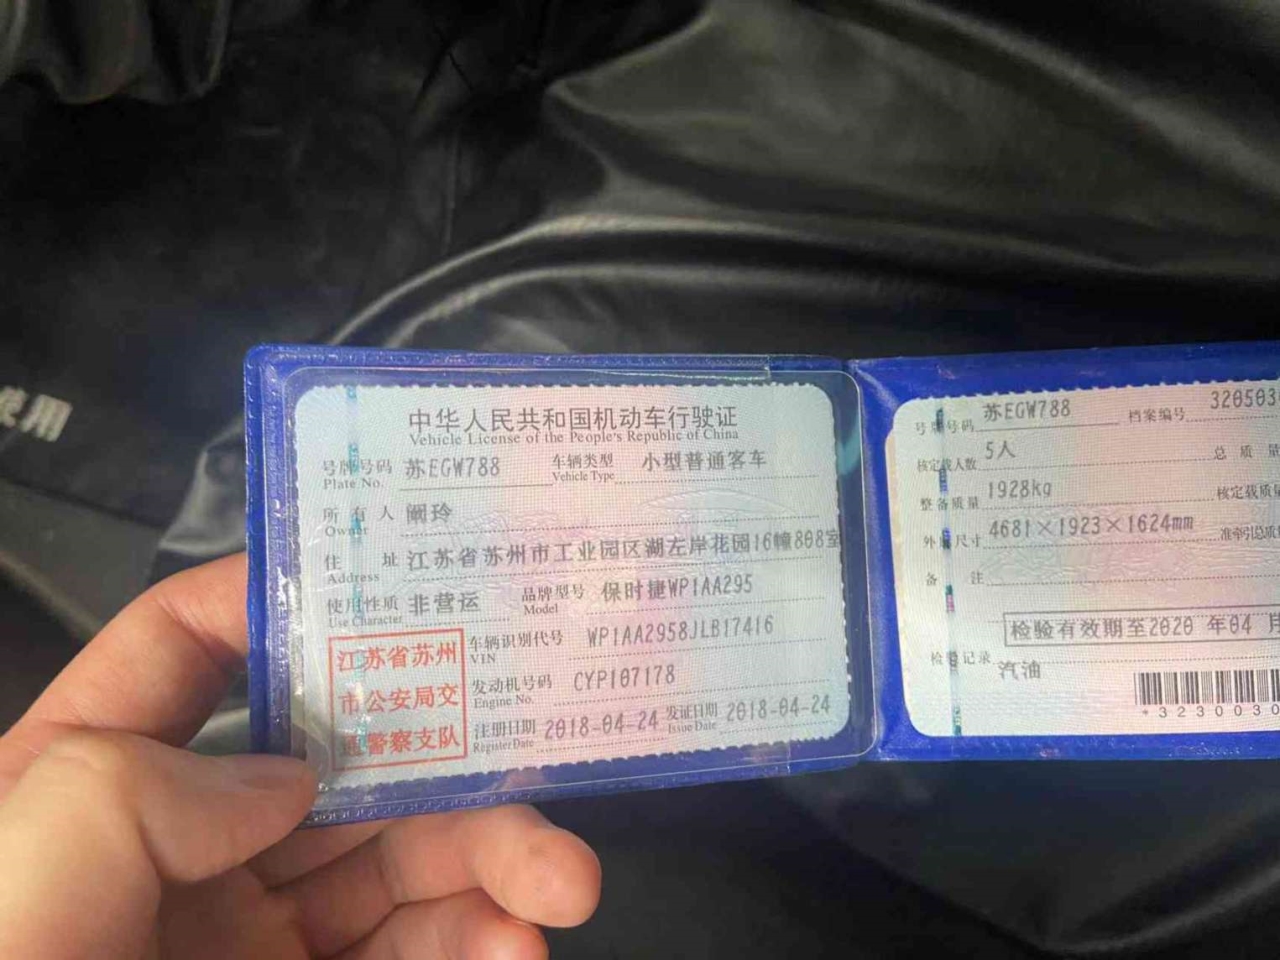 使用
中华人民共和国机动车行驶证
Vehicle License of the People's Republic of China
号牌号码 苏EGW788 车辆类型 小型普通客车
Plate No. Vehicle Type
所有人 阚玲
Owner
住址 江苏省苏州市工业园区湖左岸花园16幢808室
Address
使用性质 非营运 品牌型号 保时捷WP1AA295
Use Character Model
江苏省苏州
市公安局交
通警察支队
车辆识别代号 WP1AA2958JLB17416
VIN
发动机号码 CYP107178
Engine No.
注册日期 2018-04-24 发证日期 2018-04-24
Register Date Issue Date
号牌号码 苏EGW788 档案编号 320503
核定载人数 5人 总质量
整备质量 1928kg 核定载质量
外廓尺寸 4681×1923×1624mm 准牵引总质
备注
检验有效期至2020 年04 月
检验记录
汽油
*3230030